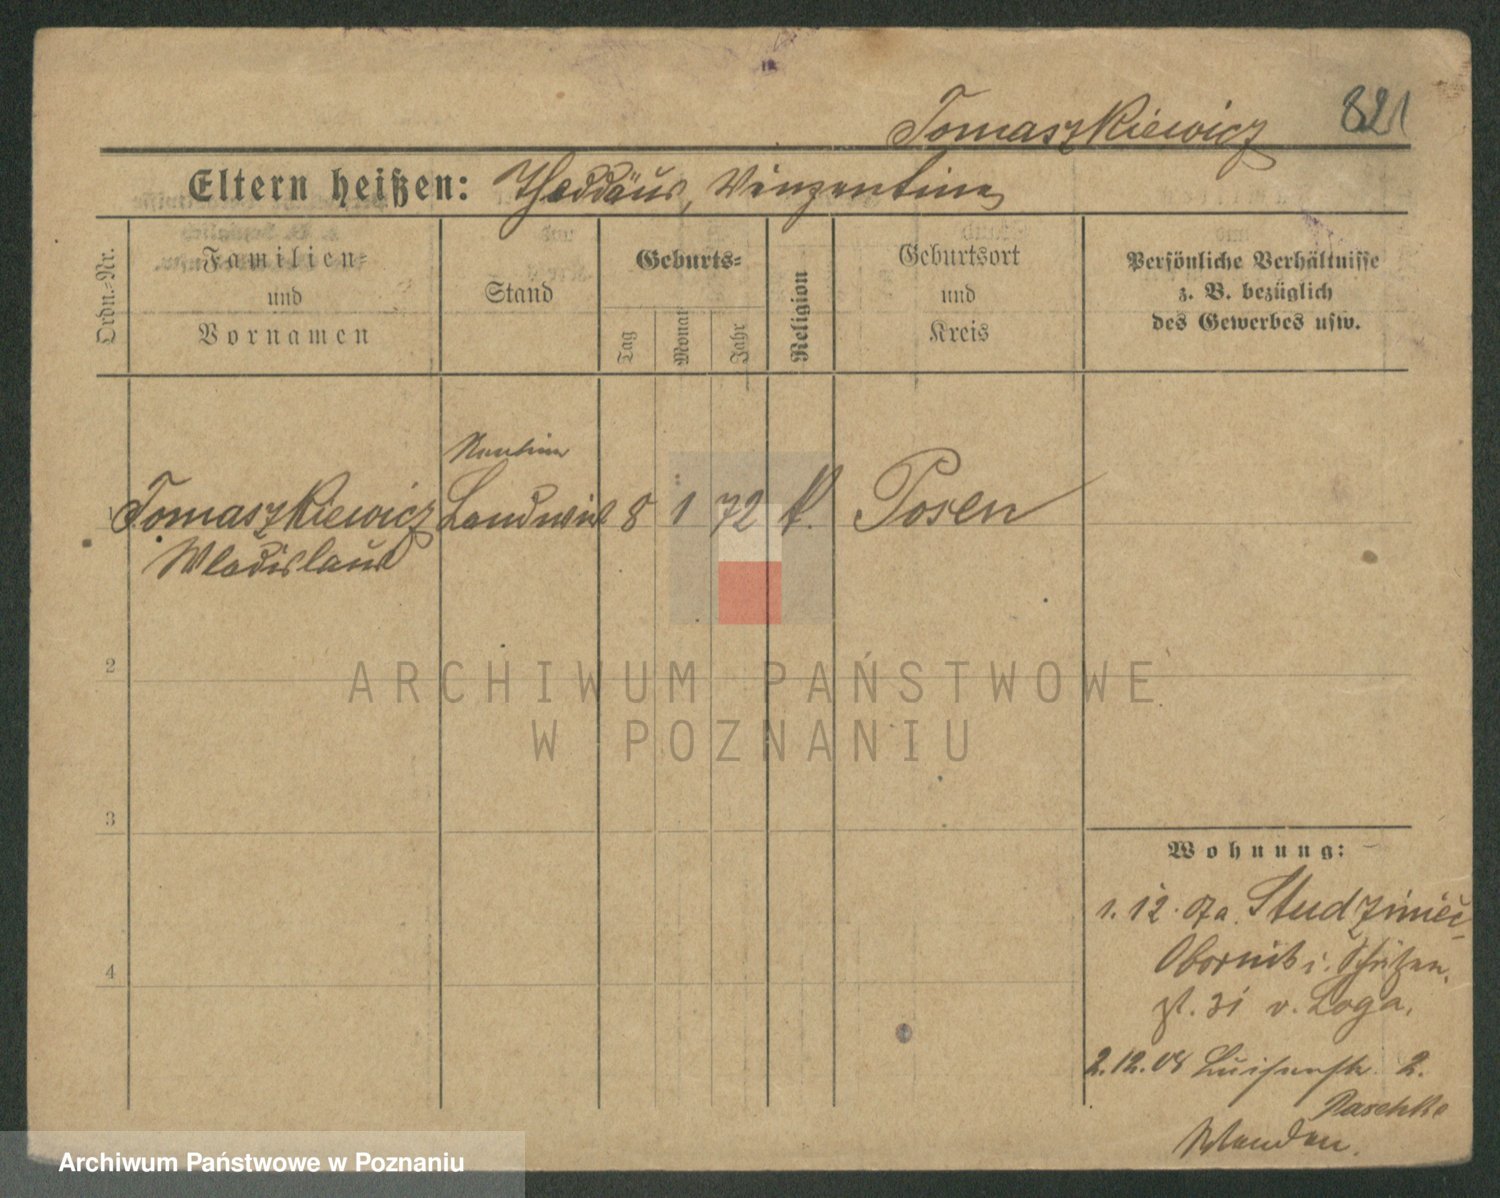 Tomaszkiewicz 821
Eltern heißen: Thaddäus, Vinzentine
Ordn.-Nr.
Familien-
und
Vornamen
Stand
Geburts-
Tag
Monat
Jahr
Religion
Geburtsort
und
Kreis
Persönliche Verhältnisse
z. B. bezüglich
des Gewerbes usw.
Rentier
1 Tomaszkiewicz Landwirt 8 1 72 k. Posen
Wladislaus
2
3
4
Wohnung:
1. 12. 07 a. Studziniec,
Obornik i. Schützen-
st. 31 v. Loga.
2.12.08 Luisenstr. 2.
Raschke
ARCHIWUM PAŃSTWOWE
W POZNANIU
Archiwum Państwowe w Poznaniu